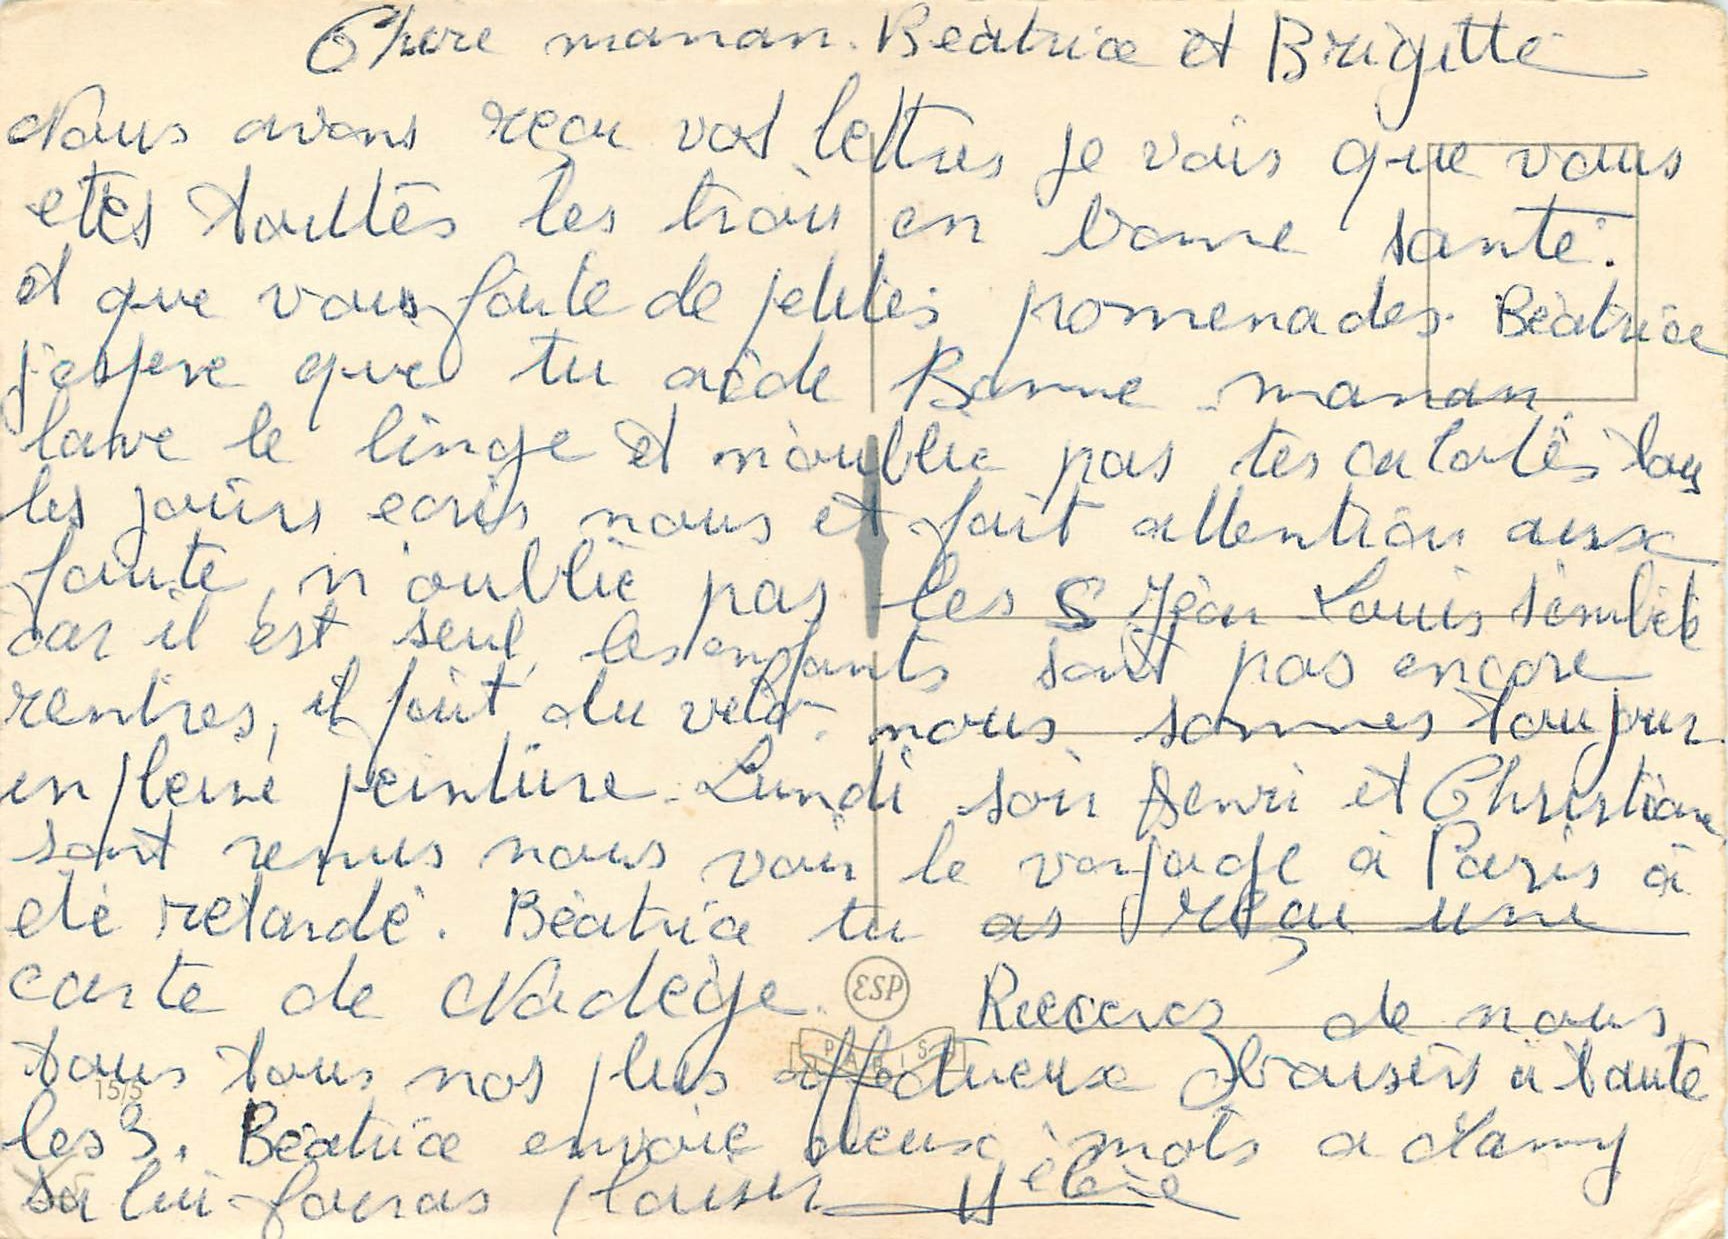 Chere manan. Beatrice et Brigitte
Nous avons reçu vos lettres je vois que vous
etes toultes les trois en bonne santé.
et que vous faite de petites promenades. Béatrice
j'espere que tu aide Bonne manan
lave le linge et n'oublie pas tes tous
les jours ecris nous et fait attention aux
faute, n'oublie pas les S Jean Louis s'embete
car il est seul, les enfants sont pas encore
rentres, il fait du velo. nous sommes toujour
en pleine peinture. Lundi soir Henri et Christiane
sont venus nous voir le voyage à Paris à
été retardé. Béatrice tu as reçu une
carte de Nadège. Recevez de nous
ESP
PARIS
tous tous nos plus affectueux baisers à toute
15/5
les 3. Béatrice envoie deux mots a Namy
sa lui feras plaisir Hélène